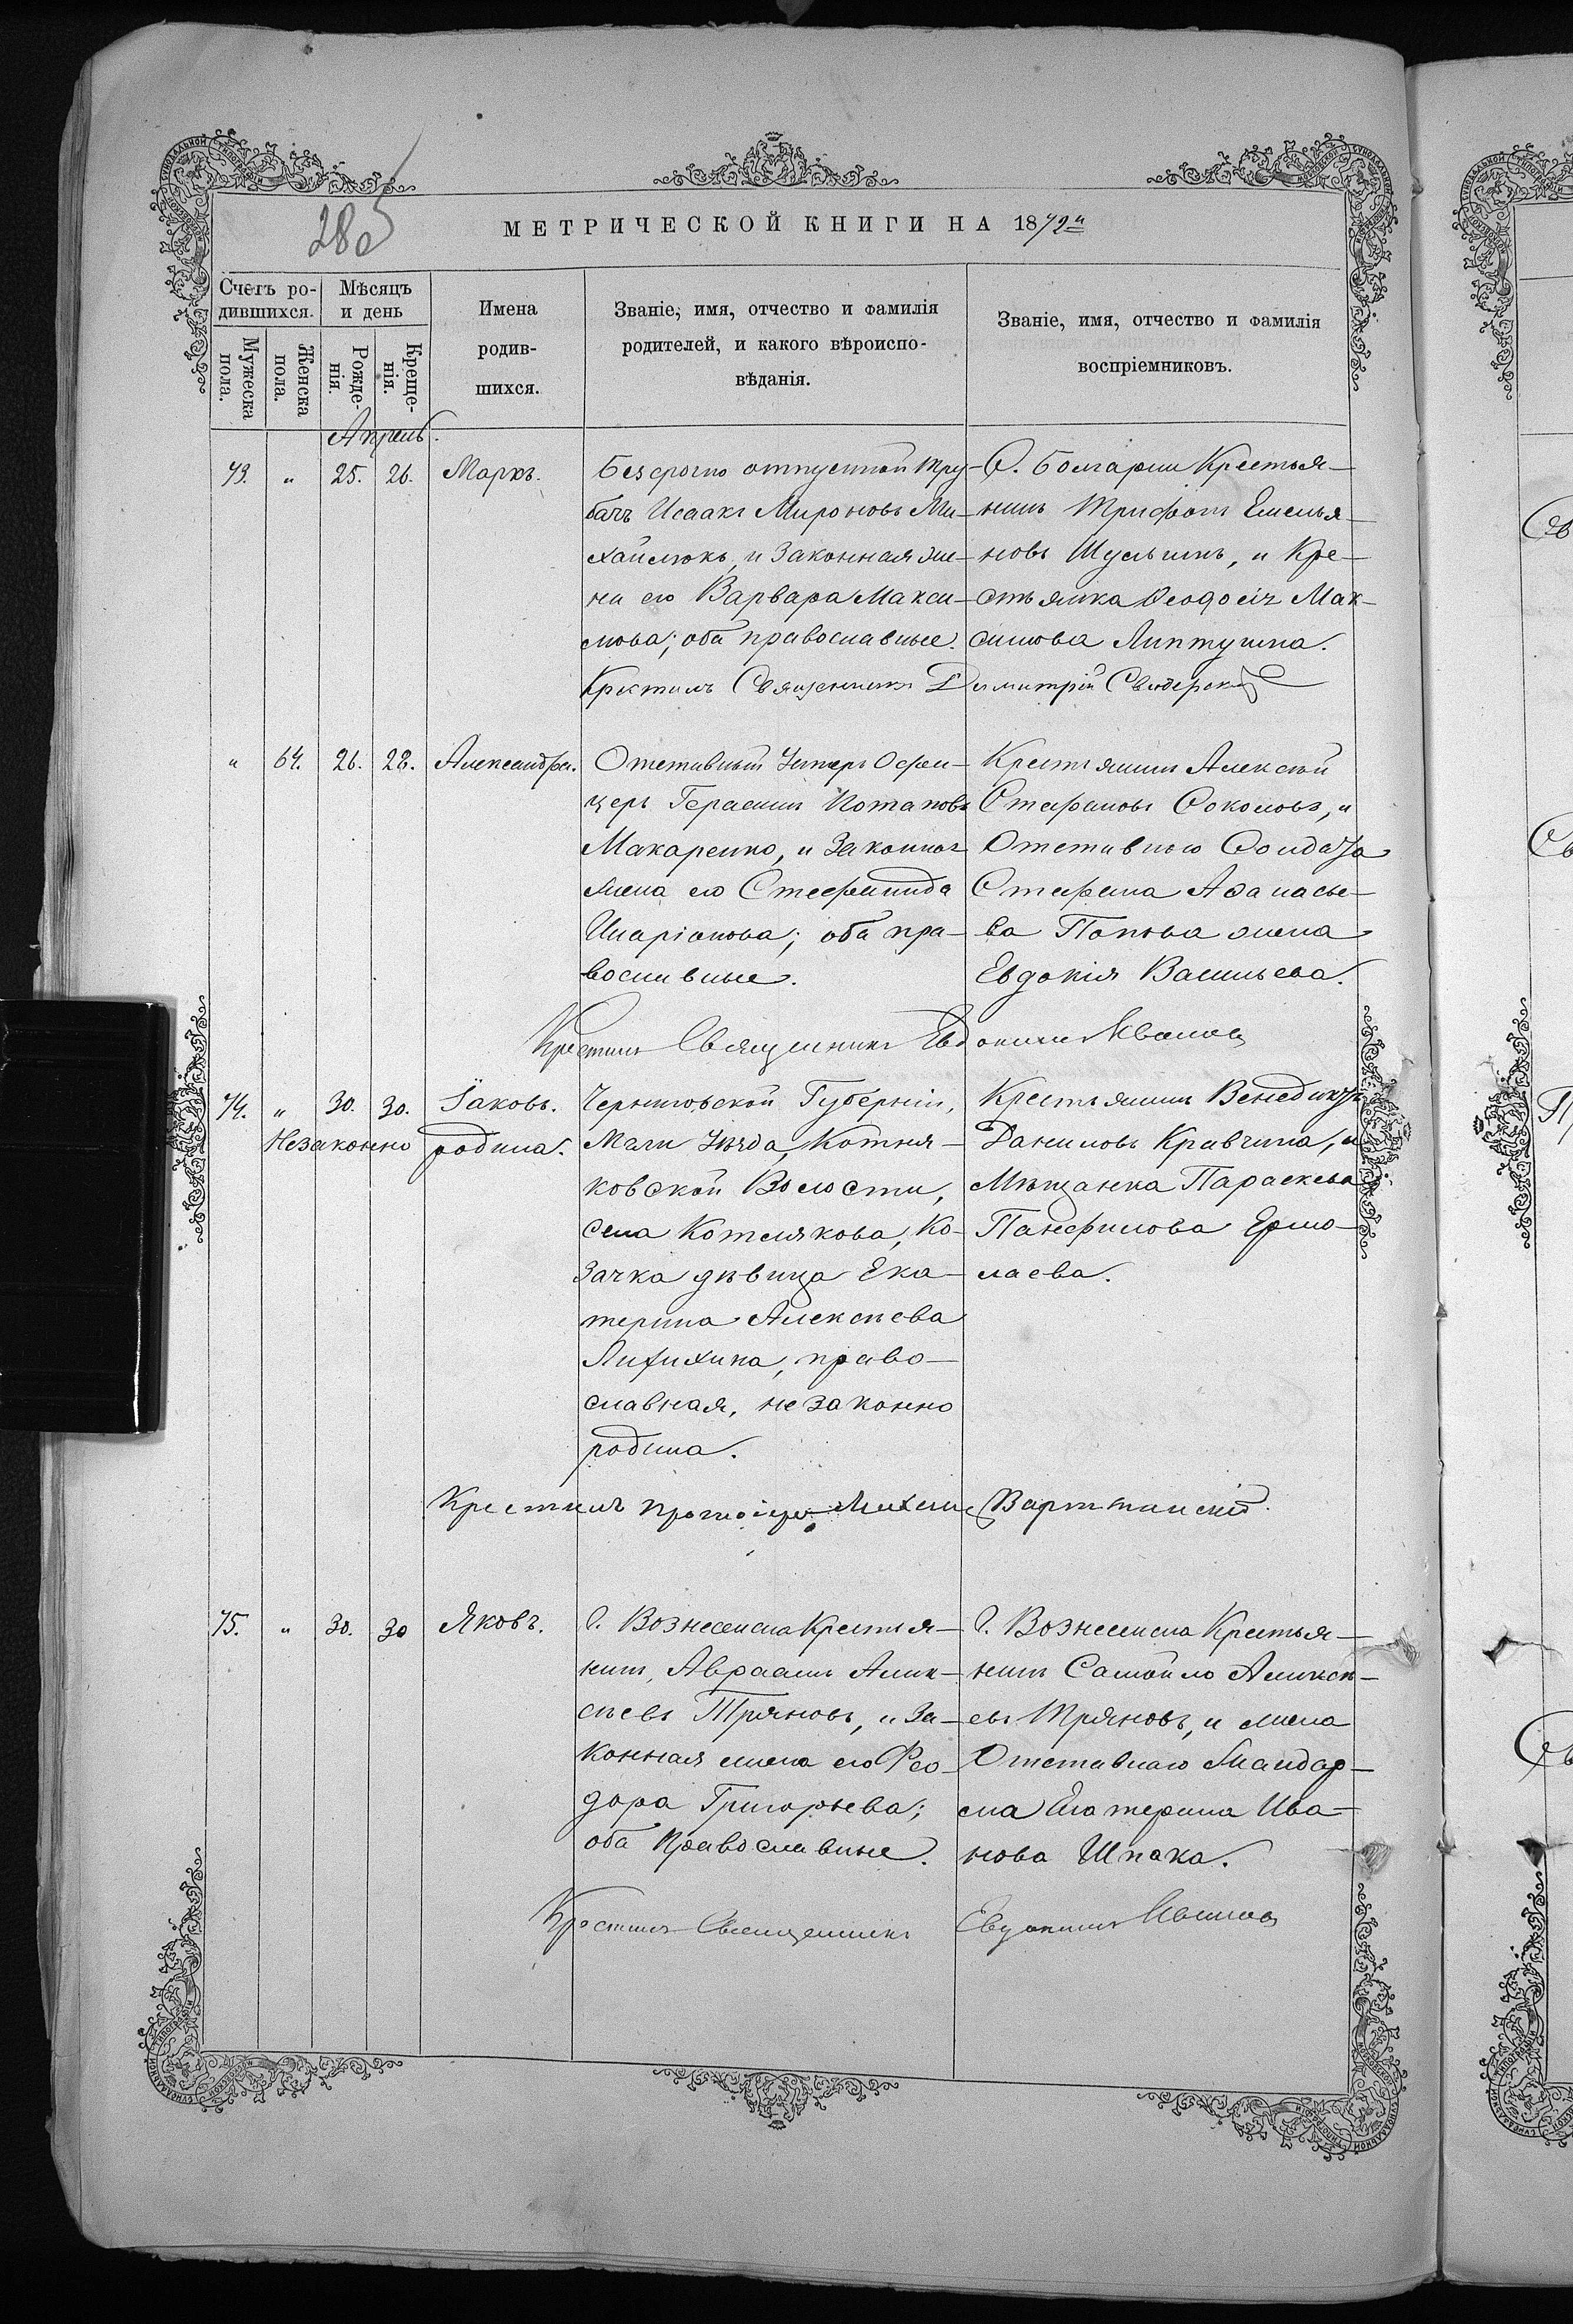 285
МЕТРИЧЕСКОЙ КНИГИ НА 1872й
Счетъ родившихся.
Мужеска пола.
Женска пола.
Мѣсяцъ и день
Рожденія.
Крещенія.
Имена родившихся.
Званіе, имя, отчество и фамилія
родителей, и какого вѣроиспо-
вѣданія.
Званіе, имя, отчество и фамилія
воспріемниковъ.
Апрель.
73. " 25. 26. Маркъ.
Безсрочно отпускной Тру-
бачъ Исаакъ Мироновъ Ми-
хайлюкъ, и Законная же-
на его Варвара Макси-
мова; оба православные.
С. Болгарки Крестья-
нинъ Трифонъ Емелья-
новъ Шульгинъ, и Кре-
стьянка Феодосія Мак-
симова Липтугина.
Крестилъ Священникъ Димитрій Свидерскій
" 64. 26. 28. Александра.
Отставный Унтеръ Офи-
церъ Герасимъ Потаповъ
Макаренко, и Законная
жена его Стефанида
Иларіонова; оба пра-
вославные.
Крестьянинъ Алексѣй
Стефановъ Соколовъ, и
Отставного Солдата
Стефана Афанасье-
ва Попова жена
Евдокія Васильева.
Крестилъ Священникъ Евдокимъ Иванов
74. " 30. 30. Іаковъ.
Незаконно родила.
Черниговской Губерніи,
Мглин Уѣзда, Котля-
ковской Волости,
села Котлякова, Ко-
зачка дѣвица Ека-
терина Алексѣева
Лихихина, право-
славная, незаконно
родила.
Крестьянинъ Венедиктъ
Даниловъ Кравчина, и
Мѣщанка Параскева
Панфилова Ермо-
лаева.
Крестилъ Протоіерей Михаил
75. " 30. 30 Яковъ.
Г. Вознесенска Крестья-
нинъ, Авраамъ Алек-
сѣевъ Тряновъ, и За-
конная жена его Фео-
дора Григорьева;
оба Православные.
Г. Вознесенска Крестья-
нинъ Самойло Алексѣ-
евъ Тряновъ, и жена
Отставнаго Жандар-
ма Екатерина Ива-
нова Шпака.
Крестилъ Священникъ Евдокимъ Иванов